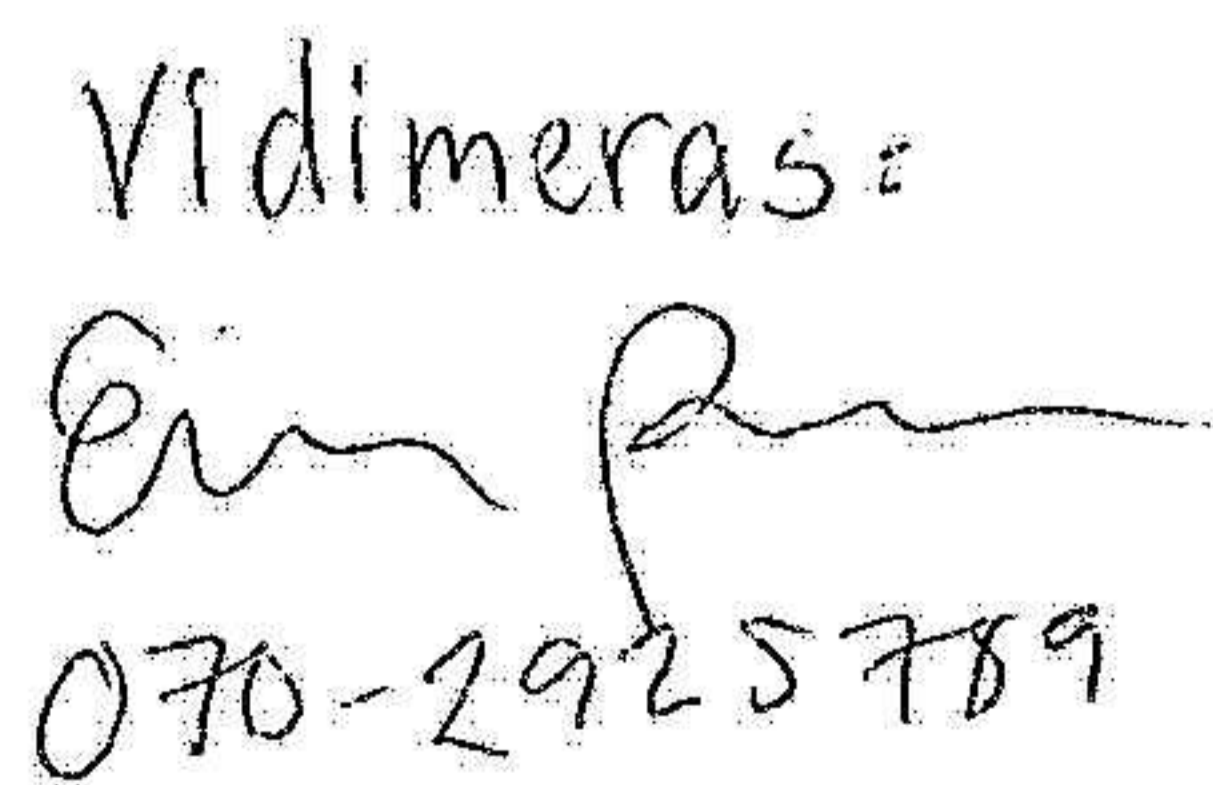 Vidimeras:
070-2925789